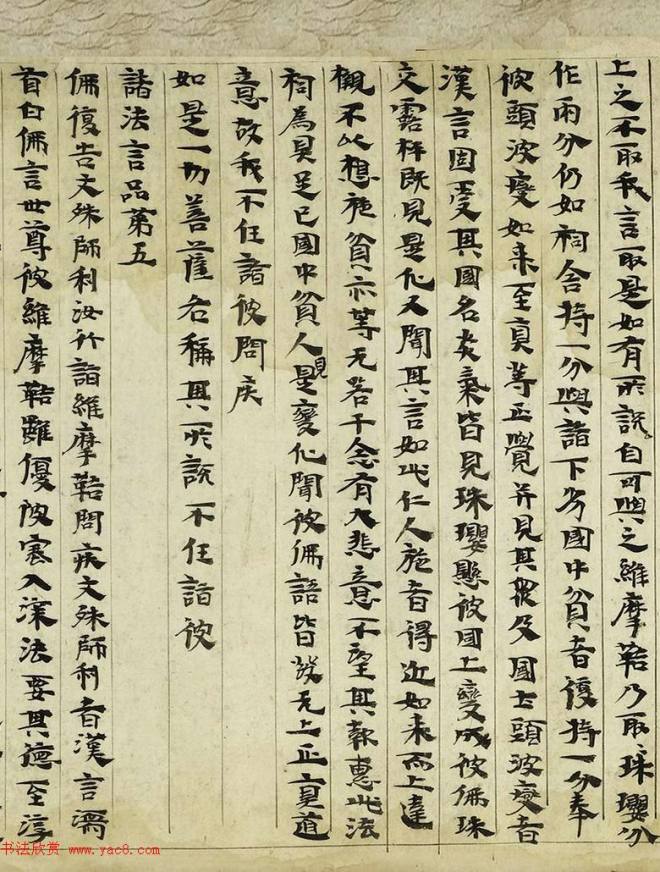 上之不取我言取是如有所說自可與之維摩鞊乃取珠瓔分
作兩分仍如祠舍持一分與諸下劣國中貧者復持一分奉
彼頭波變如來至真等正覺并見其眾及國土頭波變者
漢言固受其國名炎氣皆見珠瓔懸彼國上變成彼佛珠
交露枰既見是化又聞其言如此仁人施者得近如來而上達
櫬不以想施貧亦等无若干念有大悲意不望其報惠此法
祠為具足已國中貧人見是變化聞彼佛語皆發无上正真道
意故我不任詣彼問疾
如是一切菩薩各稱其所說不任詣彼
諸法言品第五
佛復告文殊師利汝行詣維摩鞊問疾文殊師利者漢言濡
首白佛言世尊彼維摩鞊雖優陂塞入深法要其德至淳
书法欣赏 www.yac8.com